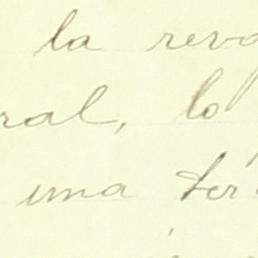 la revo
ral, lo
una ter